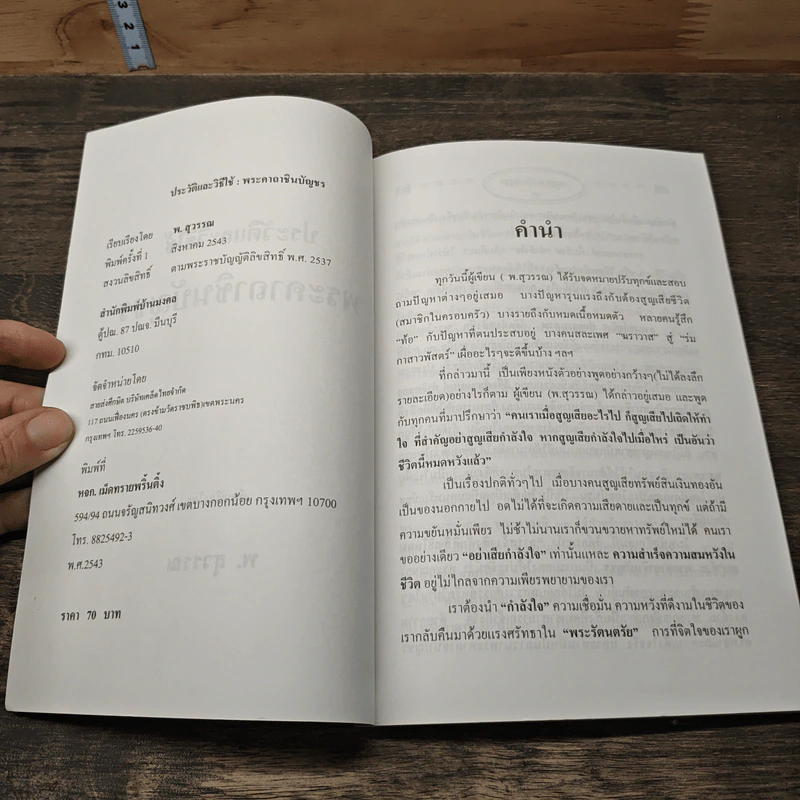 3
2
1
ประวัติและวิธีใช้ : พระคาถาชินบัญชร
เรียบเรียงโดย พ. สุวรรณ
พิมพ์ครั้งที่ 1 สิงหาคม 2543
สงวนลิขสิทธิ์ ตามพระราชบัญญัติลิขสิทธิ์ พ.ศ. 2537
สำนักพิมพ์บ้านมงคล
ตู้ปณ. 87 ปณจ. มีนบุรี
กทม. 10510
จัดจำหน่ายโดย
สายส่งศึกษิต บริษัทเคล็ดไทยจำกัด
117 ถนนเฟื่องนคร (ตรงข้ามวัดราชบพิธ)เขตพระนคร
กรุงเทพฯ โทร. 2259536-40
พิมพ์ที่
หจก. เม็ดทรายพริ้นติ้ง
594/94 ถนนจรัญสนิทวงศ์ เขตบางกอกน้อย กรุงเทพฯ 10700
โทร. 8825492-3
พ.ศ.2543
ราคา 70 บาท
คำนำ
ทุกวันนี้ผู้เขียน ( พ.สุวรรณ) ได้รับจดหมายปรับทุกข์และสอบ
ถามปัญหาต่างๆอยู่เสมอ บางปัญหารุนแรงถึงกับต้องสูญเสียชีวิต
(สมาชิกในครอบครัว) บางรายถึงกับหมดเนื้อหมดตัว หลายคนรู้สึก
“ท้อ” กับปัญหาที่ตนประสบอยู่ บางคนสละเพศ “ฆราวาส” สู่ “ร่ม
กาสาวพัสตร์” เผื่ออะไรๆจะดีขึ้นบ้าง ฯลฯ
ที่กล่าวมานี้ เป็นเพียงหนังตัวอย่างพูดอย่างกว้างๆ(ไม่ได้ลงลึก
รายละเอียด)อย่างไรก็ตาม ผู้เขียน (พ.สุวรรณ) ได้กล่าวอยู่เสมอ และพูด
กับทุกคนที่มาปรึกษาว่า “คนเราเมื่อสูญเสียอะไรไป ก็สูญเสียไปเถิดให้ทำ
ใจ ที่สำคัญอย่าสูญเสียกำลังใจ หากสูญเสียกำลังใจไปเมื่อไหร่ เป็นอันว่า
ชีวิตนี้หมดหวังแล้ว”
เป็นเรื่องปกติทั่วๆไป เมื่อบางคนสูญเสียทรัพย์สินเงินทองอัน
เป็นของนอกกายไป อดไม่ได้ที่จะเกิดความเสียดายและเป็นทุกข์ แต่ถ้ามี
ความขยันหมั่นเพียร ไม่ช้าไม่นานเราก็ขวนขวายหาทรัพย์ใหม่ได้ คนเรา
ขออย่างเดียว “อย่าเสียกำลังใจ” เท่านั้นแหละ ความสำเร็จความสมหวังใน
ชีวิต อยู่ไม่ไกลจากความเพียรพยายามของเรา
เราต้องนำ “กำลังใจ” ความเชื่อมั่น ความหวังที่ดีงามในชีวิตของ
เรากลับคืนมาด้วยแรงศรัทธาใน “พระรัตนตรัย” การที่จิตใจของเราผูก